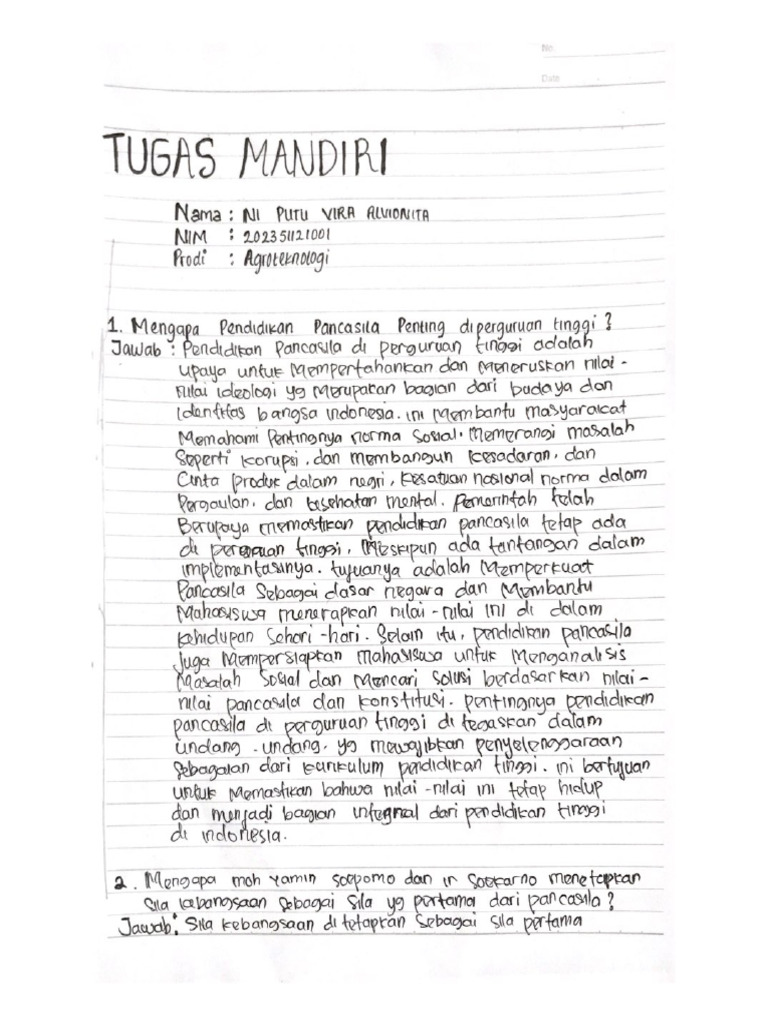 No.
Date
TUGAS MANDIRI
Nama : NI PUTU VIRA ALVIONITA
NIM : 202351121001
Prodi : Agroteknologi
1. Mengapa Pendidikan Pancasila Penting diperguruan tinggi ?
Jawab : Pendidikan Pancasila di perguruan tinggi adalah
upaya untuk Mempertahankan dan Meneruskan nilai-
nilai ideologi yg Merupakan bagian dari budaya dan
Identitas bangsa indonesia. ini Membantu masyarakat
Memahami Pentingnya norma Sosial, Memerangi masalah
Seperti korupsi, dan membangun kesadaran, dan
Cinta Produk dalam negri, kesatuan nasional norma dalam
Pergaulan, dan kesehatan mental. Pemerintah telah
Berupaya memastikan pendidikan pancasila tetap ada
di perguruan tinggi, Meskipun ada tantangan dalam
implementasinya. tujuanya adalah Memperkuat
Pancasila Sebagai dasar negara dan Membantu
Mahasiswa menerapkan nilai-nilai ini di dalam
kehidupan Sehari-hari. Selain itu, pendidikan pancasila
juga Mempersiapkan Mahasiswa untuk Menganalisis
Masalah Sosial dan Mencari Solusi berdasarkan nilai-
nilai pancasila dan konstitusi. pentingnya pendidikan
pancasila di perguruan tinggi di tegaskan dalam
undang-undang, yg mewajibkan penyelenggaraan
Sebagaian dari kurikulum pendidikan tinggi. ini bertujuan
untuk Memastikan bahwa nilai-nilai ini tetap hidup
dan menjadi bagian integral dari pendidikan tinggi
di indonesia.
2. Mengapa moh yamin soepomo dan ir Soekarno menetapkan
Sila kebangsaan Sebagai Sila yg pertama dari pancasila ?
Jawab : Sila kebangsaan di tetapkan Sebagai Sila pertama